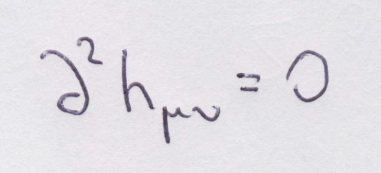 ∂²hμν = 0